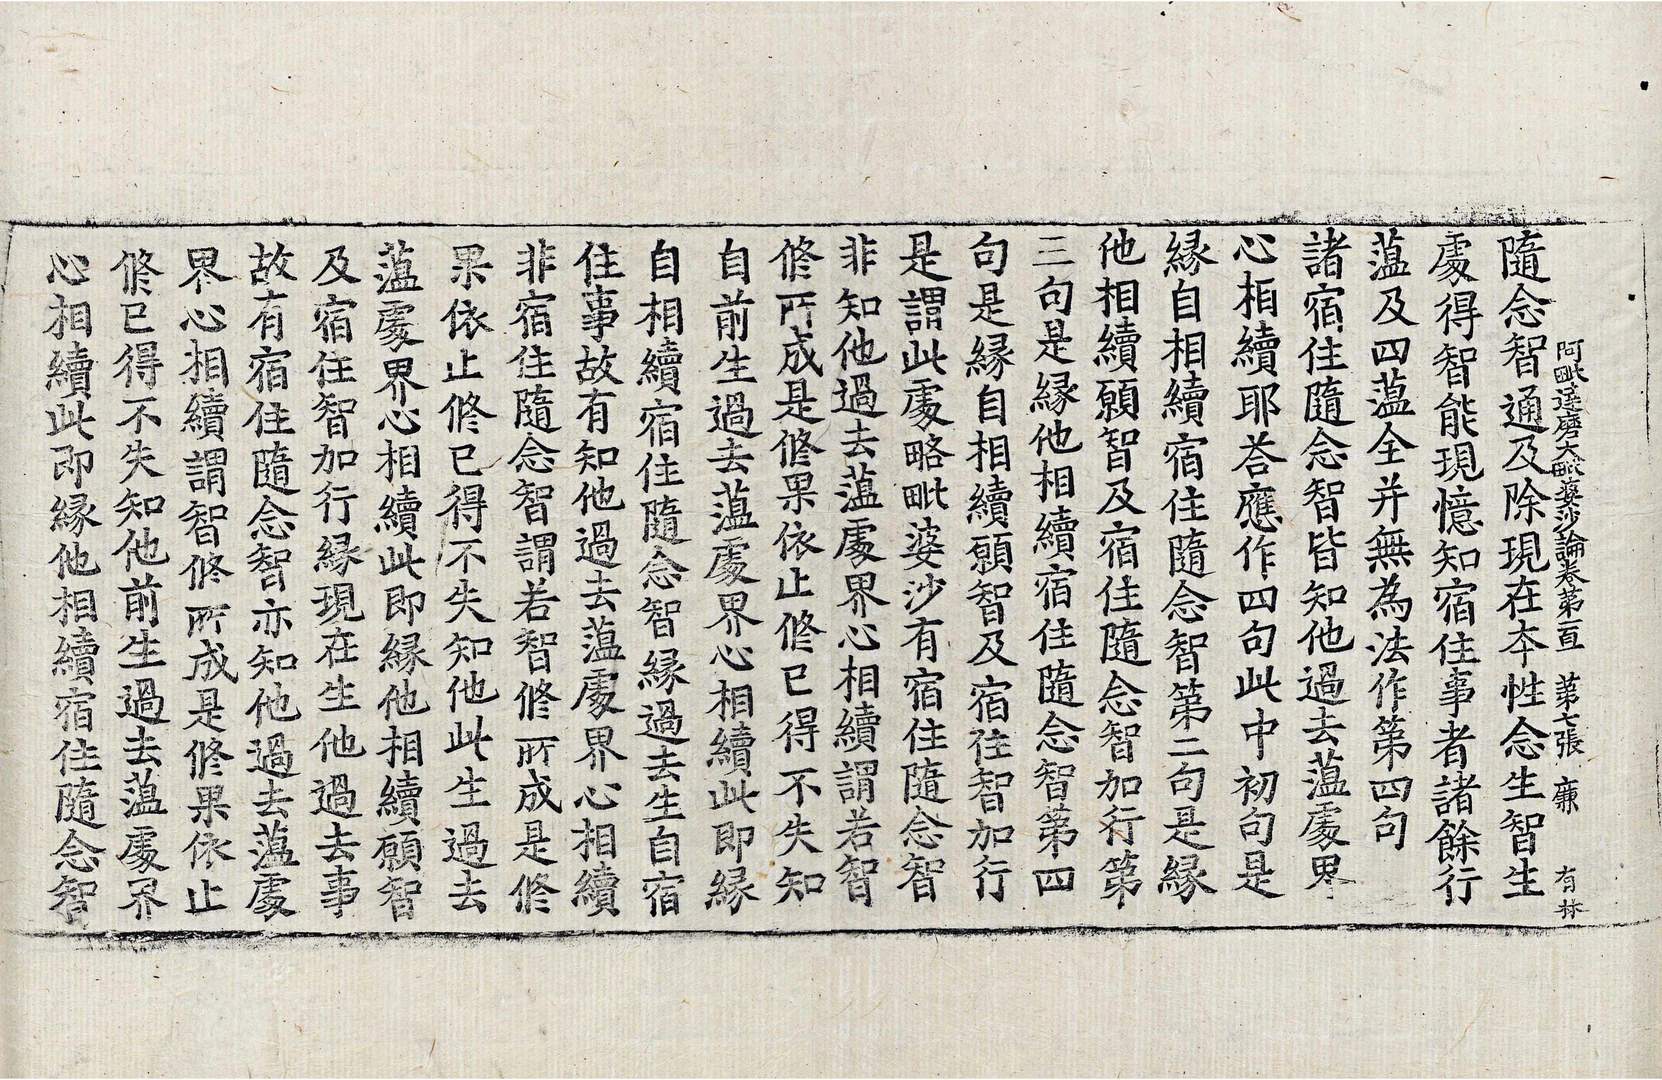 阿毗達磨大毗婆沙論卷第一百 第七張 廉 有林
隨念智通及除現在本性念生智生
處得智能現憶知宿住事者諸餘行
蕰及四蕰全并無為法作第四句
諸宿住隨念智皆知他過去蕰處界
心相續耶荅應作四句此中初句是
緣自相續宿住隨念智第二句是緣
他相續願智及宿住隨念智加行第
三句是緣他相續宿住隨念智第四
句是緣自相續願智及宿住智加行
是謂此處略毗婆沙有宿住隨念智
非知他過去蕰處界心相續謂若智
修所成是修果依止修已得不失知
自前生過去蕰處界心相續此即緣
自相續宿住隨念智緣過去生自宿
住事故有知他過去蕰處界心相續
非宿住隨念智謂若智修所成是修
果依止修已得不失知他此生過去
蕰處界心相續此即緣他相續願智
及宿住智加行緣現在生他過去事
故有宿住隨念智亦知他過去蕰處
界心相續謂智修所成是修果依止
修已得不失知他前生過去蕰處界
心相續此即緣他相續宿住隨念智